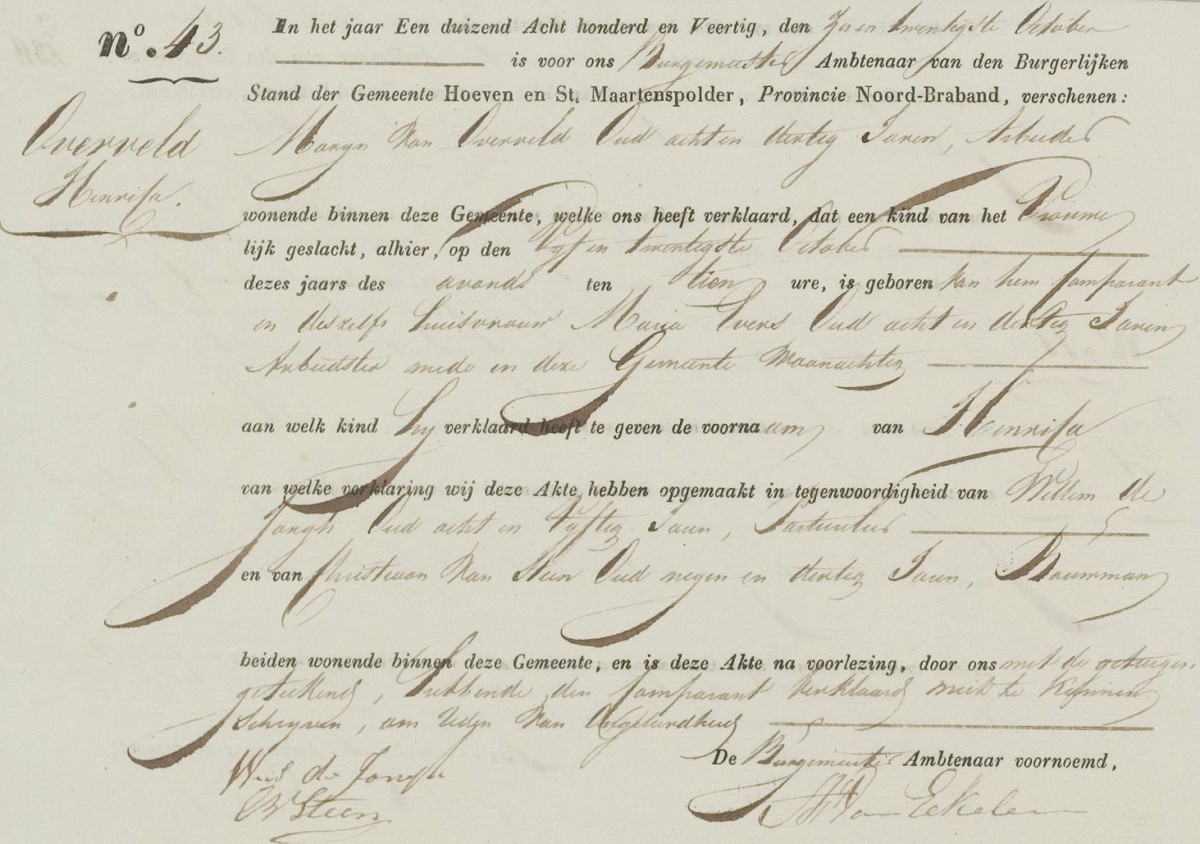 Nº. 43. In het jaar Een duizend Acht honderd en Veertig, den Zes en twentigste October
is voor ons Burgemeester Ambtenaar van den Burgerlijken
Stand der Gemeente Hoeven en St. Maartenspolder, Provincie Noord-Braband, verschenen:
Overveld
Henrica.
Maryn Van Overveld Oud acht en dertig Jaren, Arbeider
wonende binnen deze Gemeente, welke ons heeft verklaard, dat een kind van het Vrouwe
lijk geslacht, alhier, op den Vyf en twentigste October
dezes jaars des avonds ten tien ure, is geboren van hem Comparant
en deszelfs huisvrouw Maria Evers Oud acht en dertig Jaren
Arbeidster mede in deze Gemeente Woonachtig
aan welk kind hy verklaard heeft te geven de voornaam van Henrica
van welke verklaring wij deze Akte hebben opgemaakt in tegenwoordigheid van Willem de
Jongh Oud acht en Vyftig Jaren, Particulier
en van Christiaan Van Steen Oud negen en dertig Jaren, Bouwman
beiden wonende binnen deze Gemeente, en is deze Akte na voorlezing, door ons met de getuigen
geteekend, hebbende den Comparant Verklaard niet te Kennen
Schryven, om reden Van Ongeleerdheid
De Burgemeester Ambtenaar voornoemd,
Will de Jongh
C V Steen
Van Eekelen